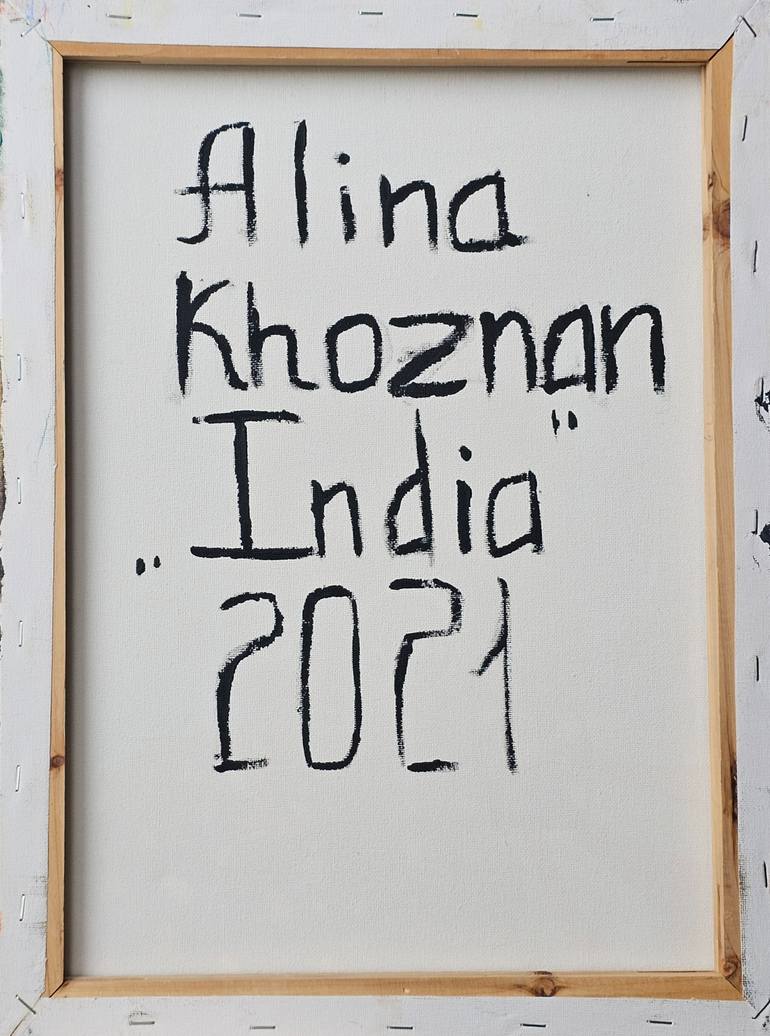 Alina
Khoznan
„India"
2021